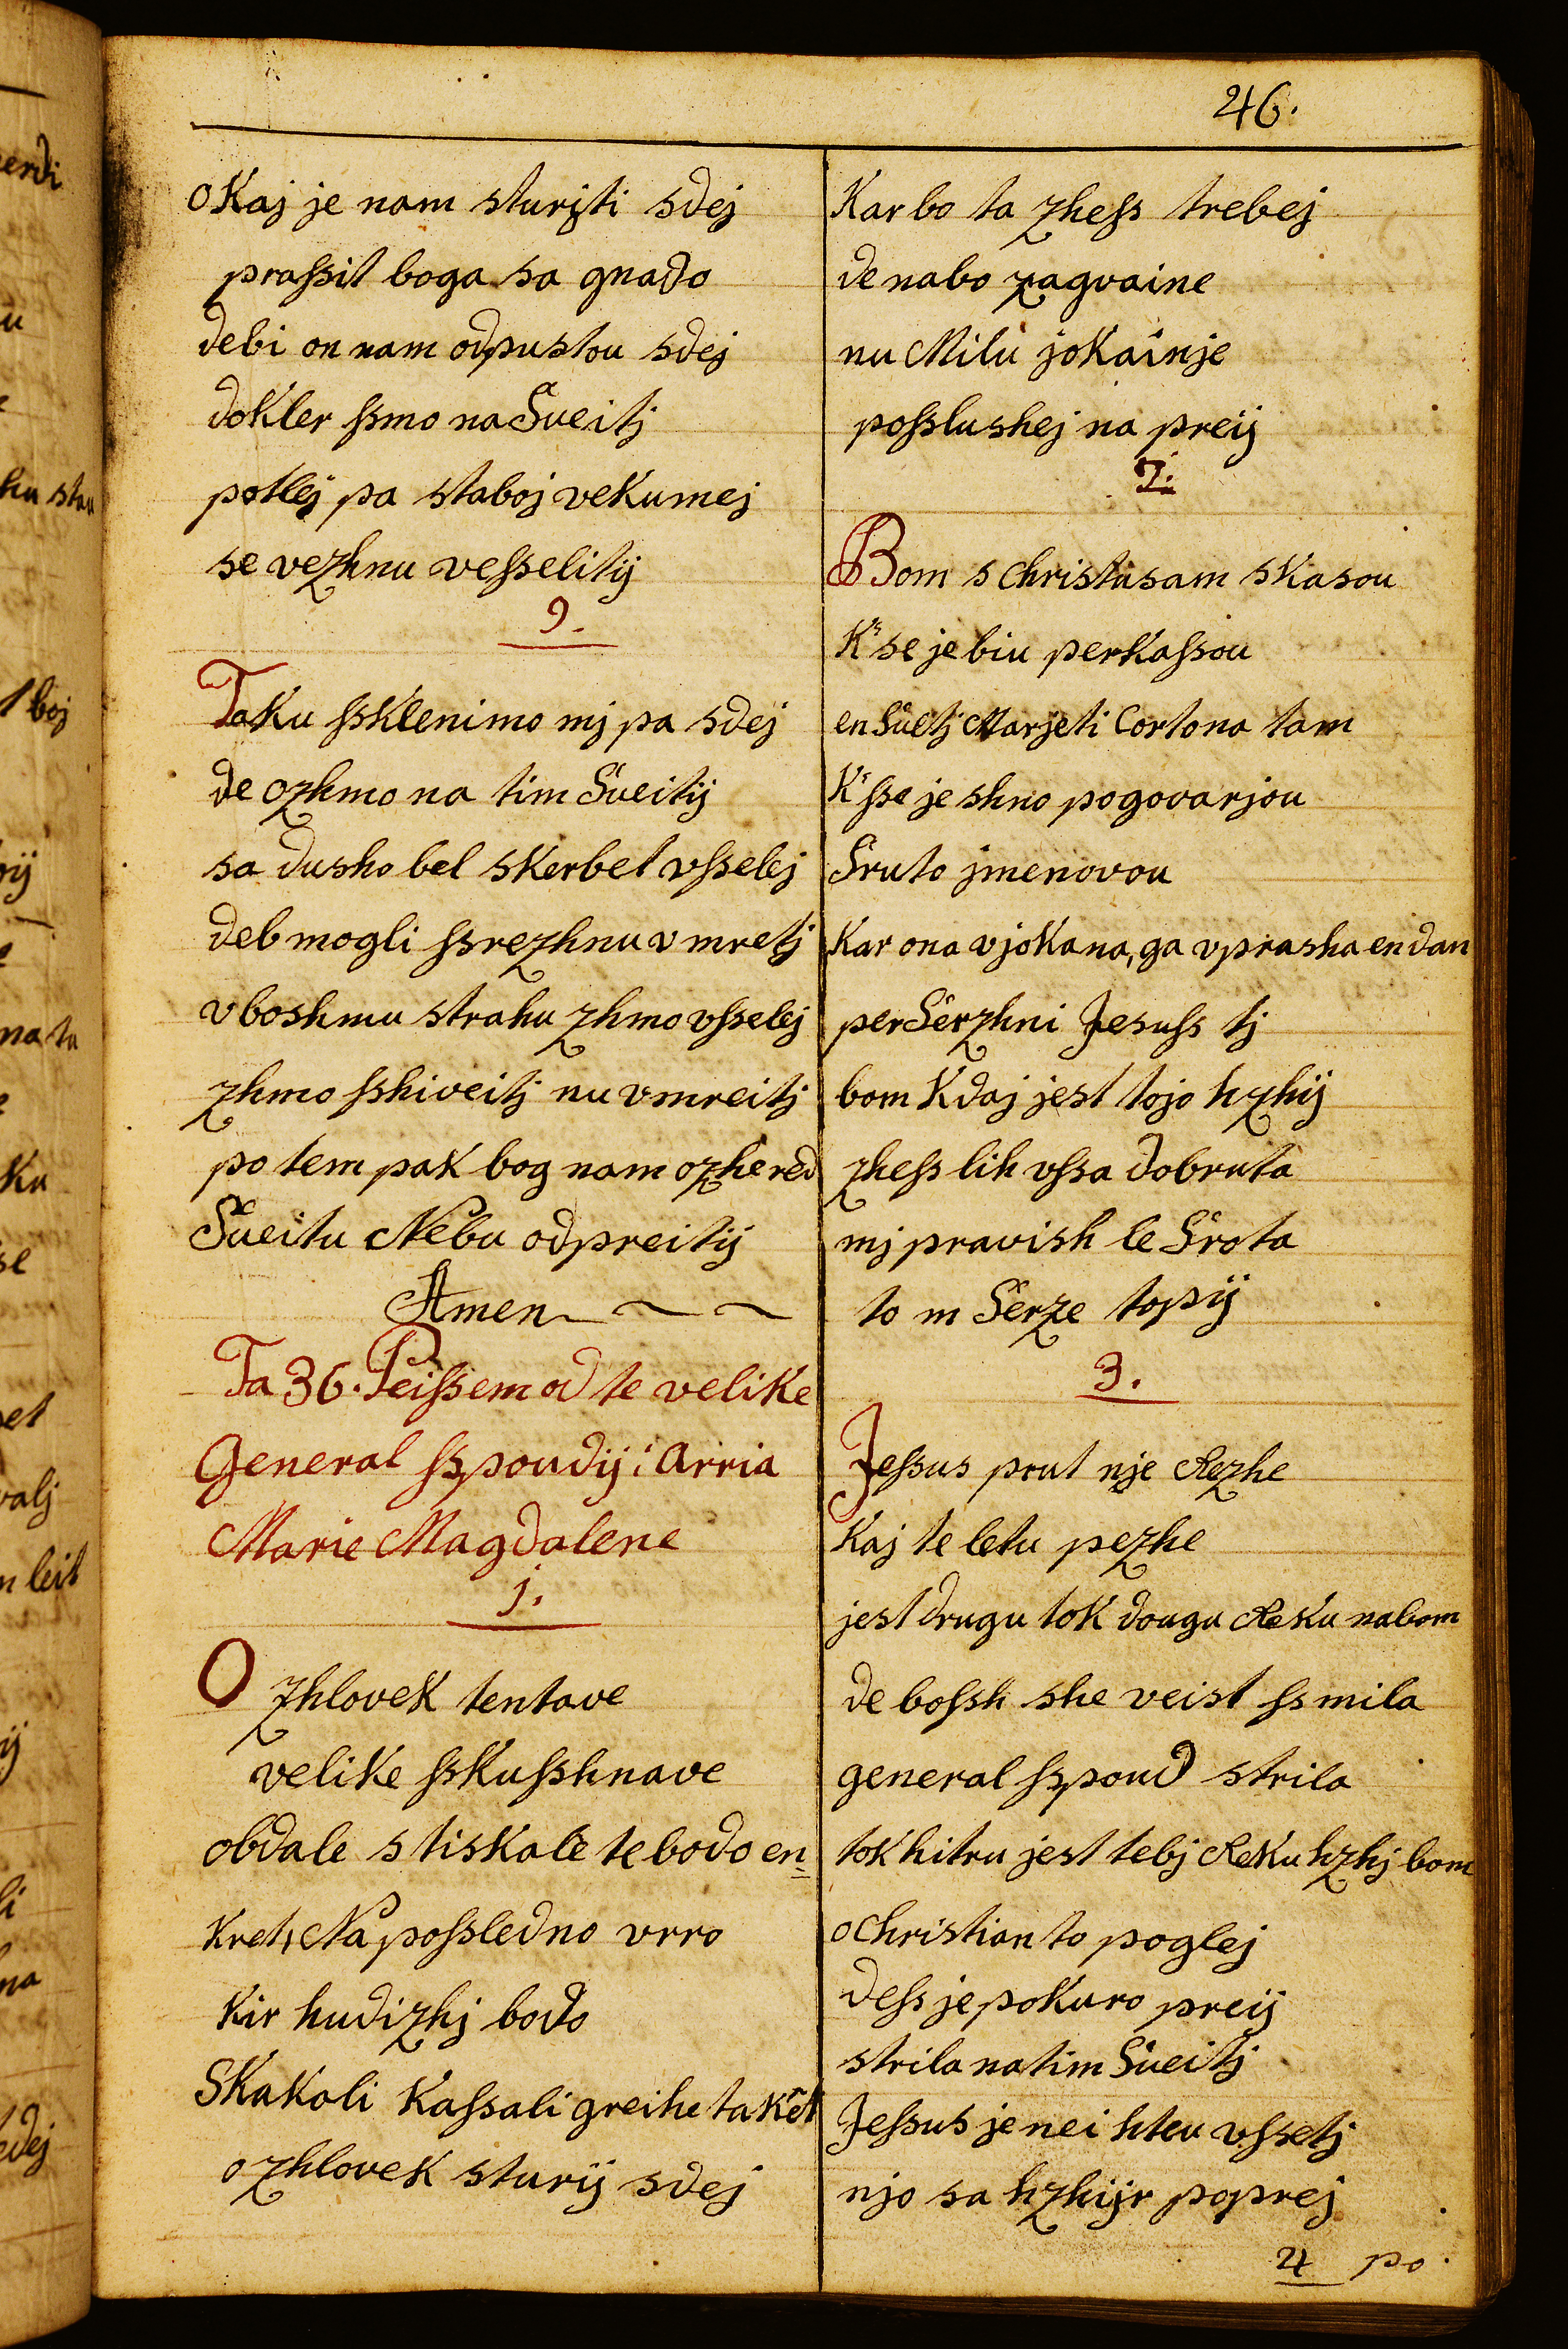 46.
o Kaj je nam sturjti sdej
praſsit boga sa gnado
debi on nam odpustou sdej
dokler ſsmo na Sveitj
potlej pa staboj vekumej
se vezhnu veſselitij
9.
Taku ſsklenimo mj pa sdej
de ozhmo na tim Sveitij
sa dusho bel skerbet vſselej
deb mogli ſsrezhnu vmretj
vboshmu strahu zhmo vſselej
zhmo ſshiveitj nu vmreitj
po tem pak bog nam ozhe red
Sveitu Nebu odpreitij
Amen
Ta 36. Peiſsem od te velike
General ſspoudij: arria
Marie Magdalene
j.
O zhlovek tentave
velike ſskuſshnave
obdale stiskale te bodo en
kret, Na poſsledno vrro
kir hudizhj bodo
Skakoli kaſsali greihe takèt
o zhlovek sturij sdej
Kar bo ta zheſs trebej
de nabo zagvaine
nu Milu jokainje
poſslushej na preij
2.
Bom s christusam skasou
K' se je biu perkaſsou
en Suetj Marjeti Cortona tam
K' ſse je shno pogovarjou
Sruto jmenovou
Kar ona vjokana, ga vprasha en dan
per Serzhni Jesuſs tj
bom kdaj jest tojo hzhij
zheſs lih vſsa dobruta
mj pravish le Srota
to m Serze topij
3.
Jeſsus prut nje Rezhe
kaj te letu pezhe
jest drugu tok dougu Reku nabom
de boſsh she veist ſsmila
general ſspoud strila
tok hitru jest tebj Reku hzhj bom
o christian to poglej
deſs je pokuro preij
strila na tim Sueitj
Jeſsus je nei hteu vſsetj
njo sa hzhijr poprej
4 po